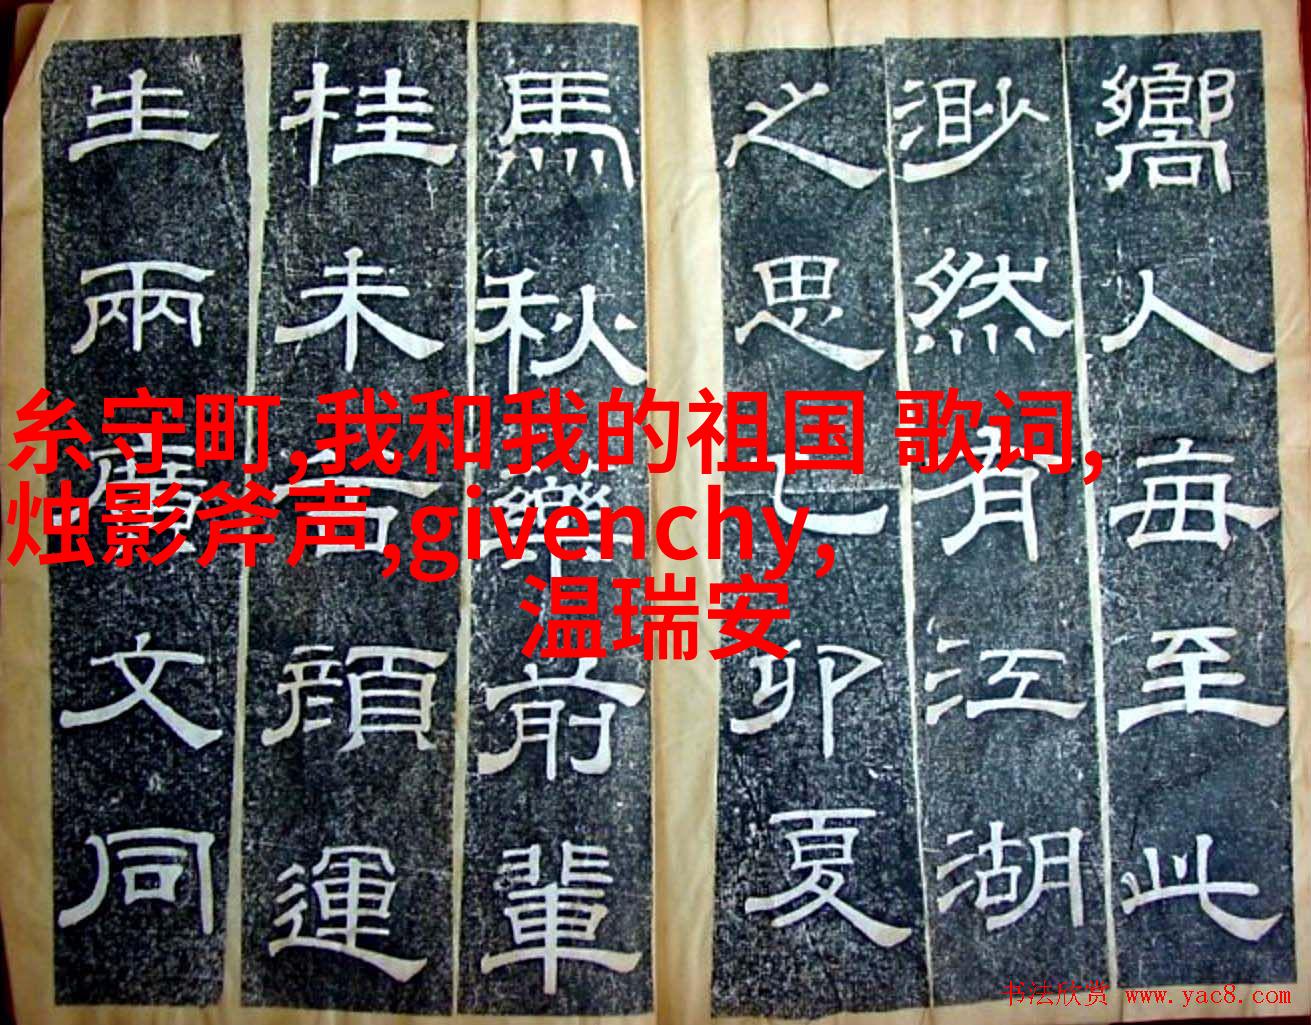 嚮人每至此
渺然有江湖
之思乙卯夏
馬秋藥前輩
桂未谷顔運
生兩廣文同
糸守町,我和我的祖国 歌词,
烛影斧声,givenchy,
温瑞安
书法欣赏 www.yac8.com